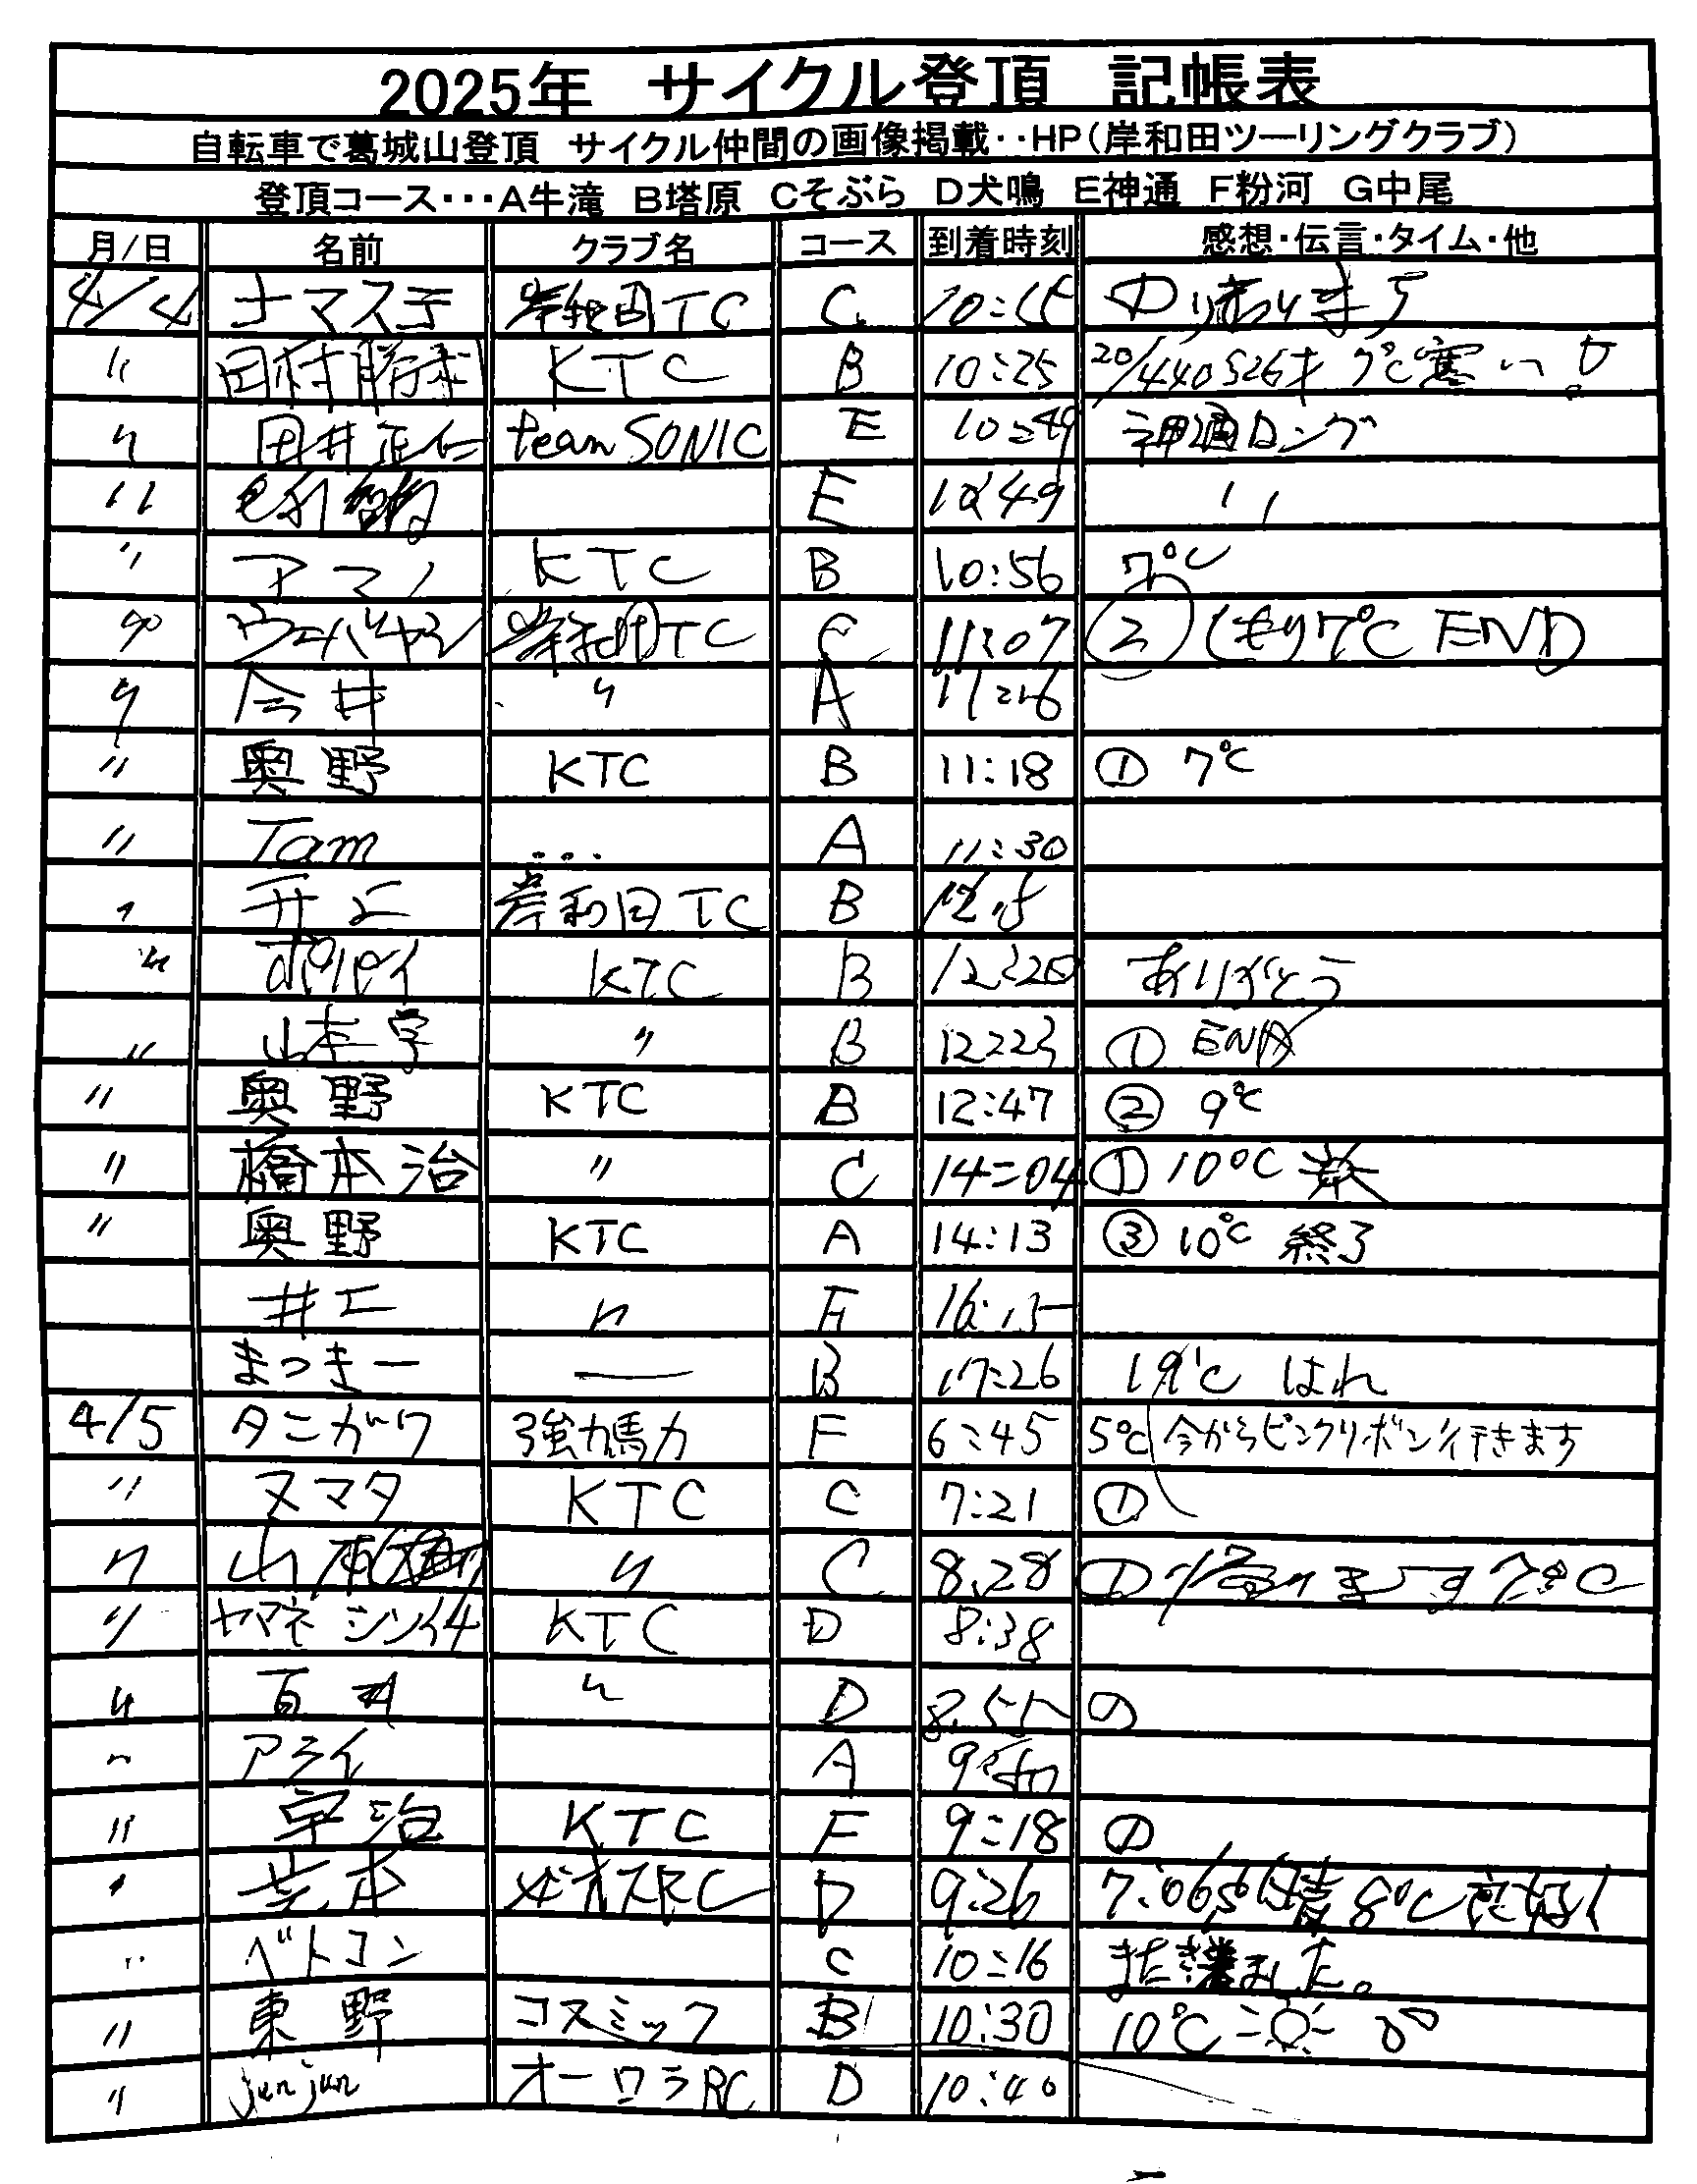 2025年 サイクル登頂 記帳表
自転車で葛城山登頂 サイクル仲間の画像掲載‥HP(岸和田ツーリングクラブ)
登頂コース･･･A牛滝 B塔原 Cそぶら D犬鳴 E神通 F粉河 G中尾
月/日 名前 クラブ名 コース 到着時刻 感想・伝言・タイム・他
4/4 ナマス子 岸和田TC C 10:15 ①
〃 田村 KTC B 10:25 20/440 526才 7℃寒い
〃 田井正仁 team SONIC E 10:49 神通ロング
〃 E 10:49 〃
〃 アマノ KTC B 10:56 7℃
〃 ウーバヤン 岸和田TC C 11:07 ② くもり7℃ END
〃 今井 〃 A 11:16
〃 奥野 KTC B 11:18 ① 7℃
〃 Tam A 11:30
〃 井上 岸和田TC B 12:15
〃 ポパイ KTC B 12:20 ありがとう
〃 山本学 〃 B 12:23 ① END
〃 奥野 KTC B 12:47 ② 9℃
〃 橋本治 〃 C 14:04 ① 10℃
〃 奥野 KTC A 14:13 ③ 10℃ 終了
井上 〃 F 16:15
まつきー ー B 17:26 19℃ はれ
4/5 タニガワ 強力馬力 F 6:45 5℃ 今からピンクリボン行きます
〃 ヌマタ KTC C 7:21 ①
〃 山本 〃 C 8:28 ① ます 7℃
〃 ヤマネ シンイチ KTC D 8:38
〃 百井 〃 D 8:55 ①
〃 アライ A
〃 宇治 KTC F 9:18 ①
〃 芝本 D 9:26 8℃ 良好!
〃 ベトコン C 10:16 また来ました。
〃 東野 コスミック B 10:30 10℃
〃 junjun オーロラRC D 10:40